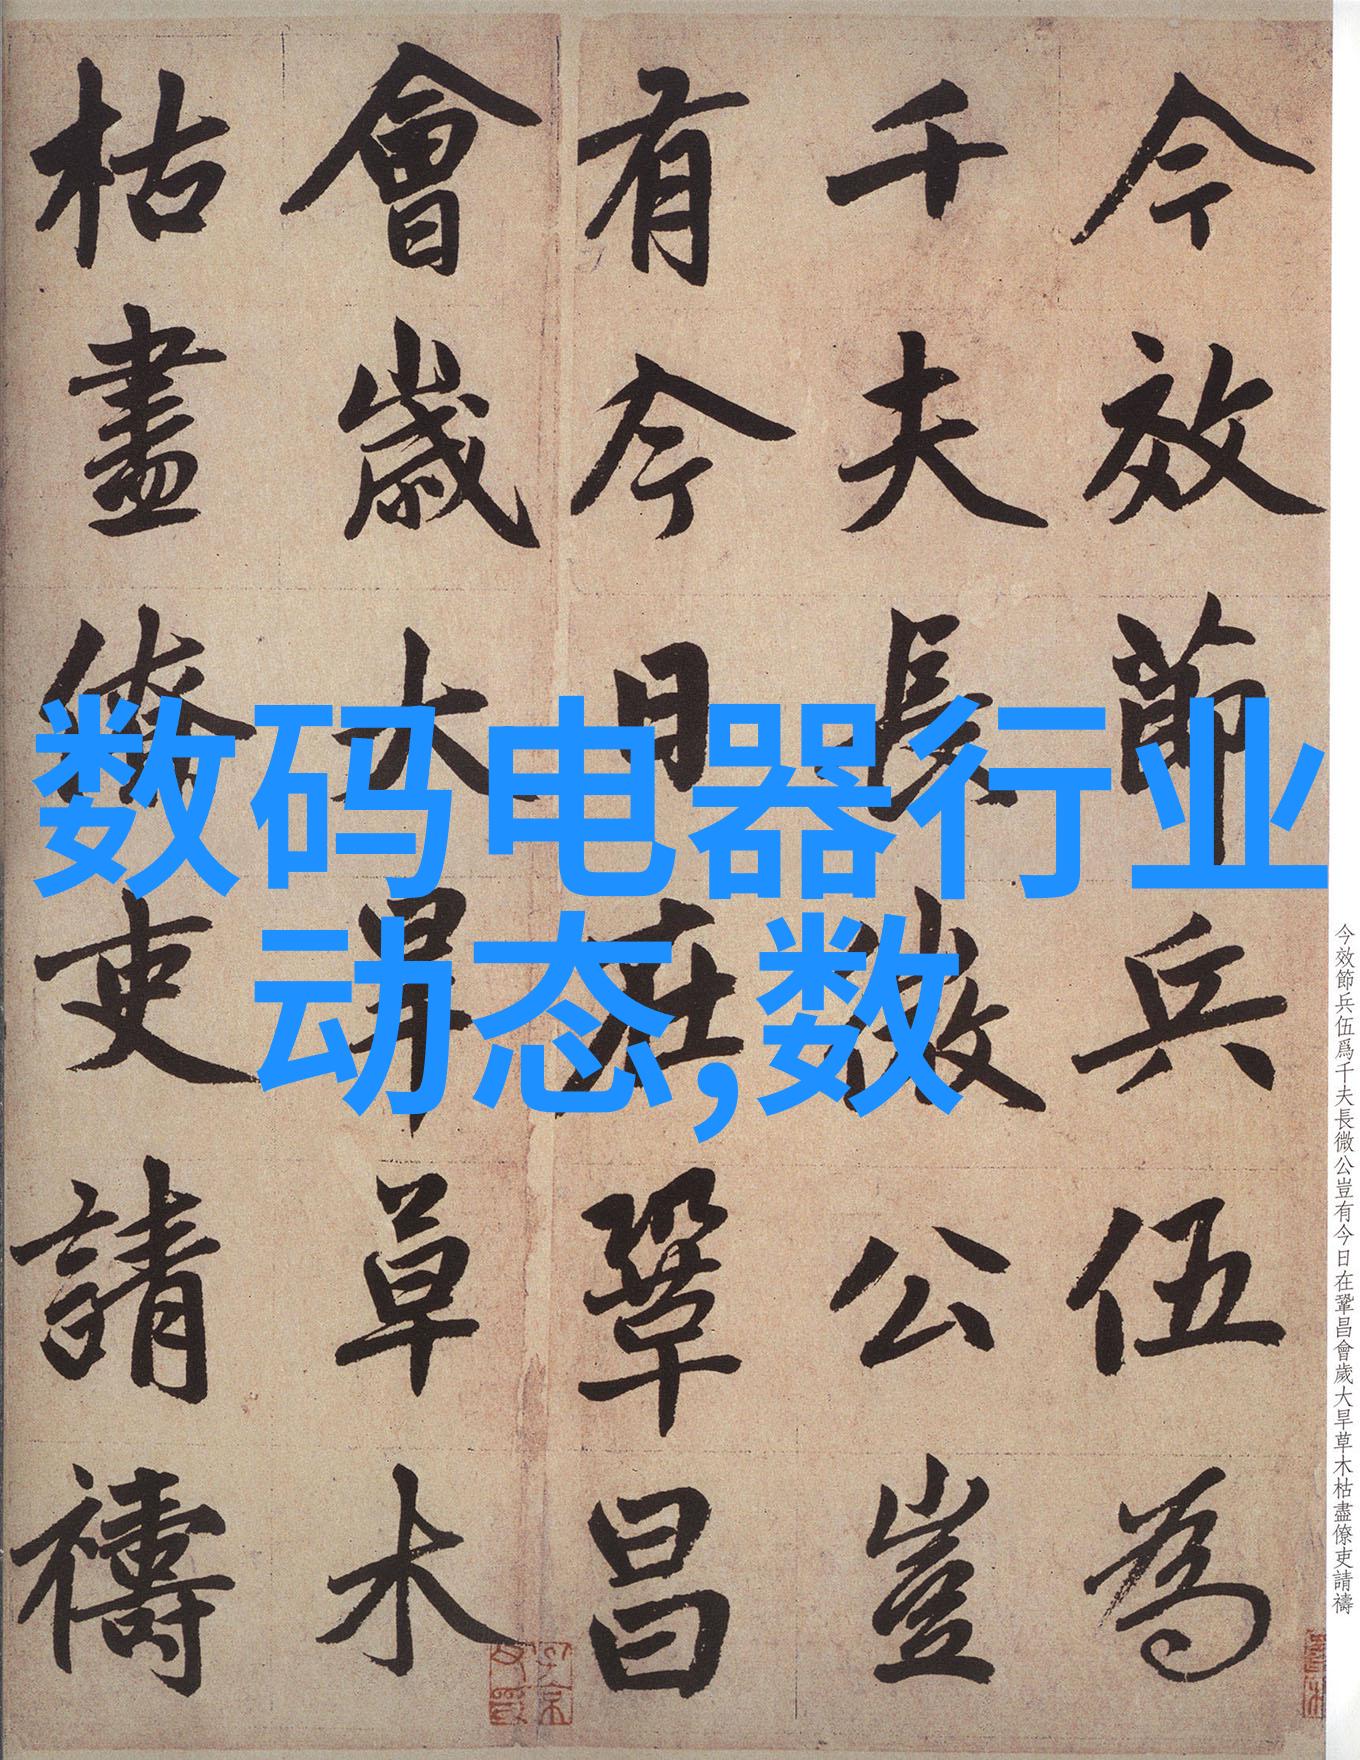 数码电器行业
动态,数
今效節兵伍為
千夫長微公豈
有今日在鞏昌
會歲大旱草木
枯盡僚吏請禱
今效節兵伍爲千夫長微公豈有今日在鞏昌會歲大旱草木枯盡僚吏請禱